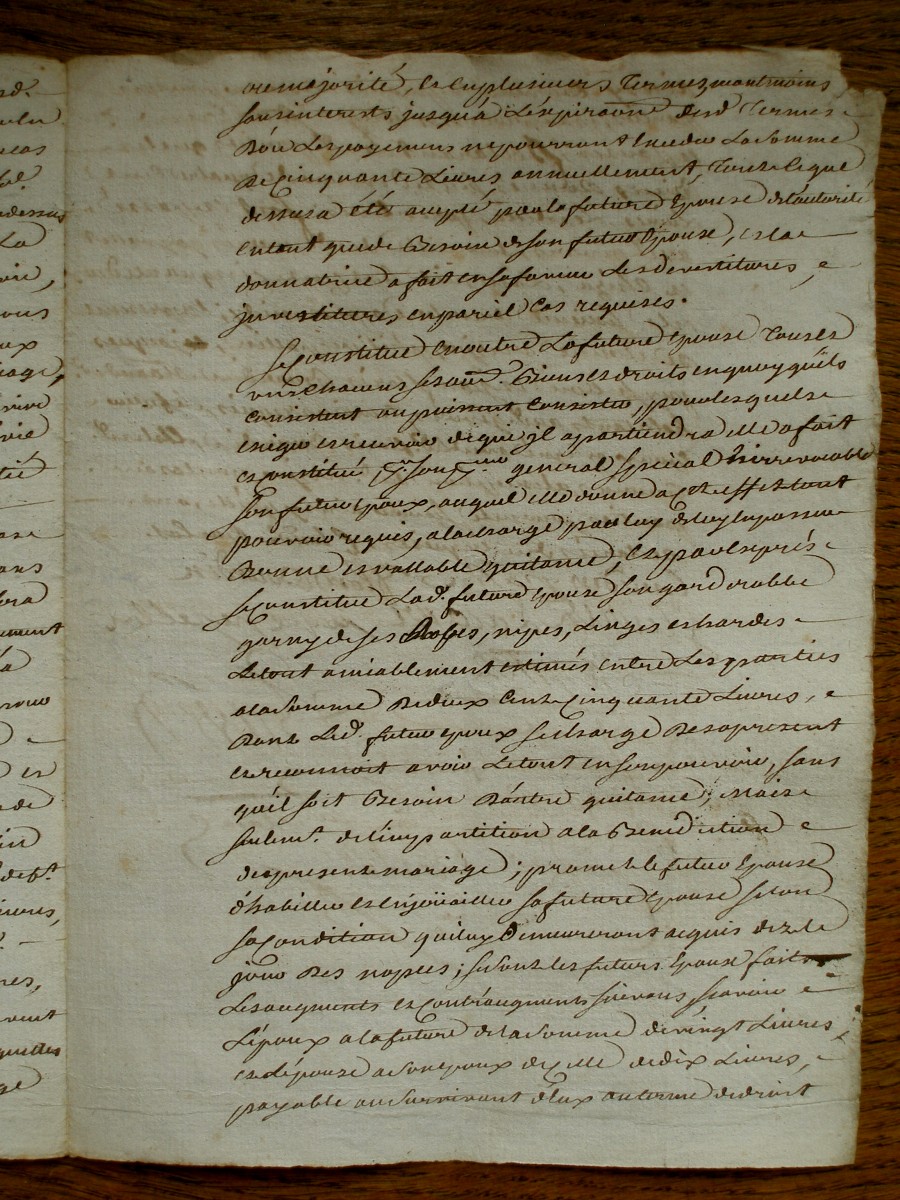 rd.
dessus
La
oire,
ous
ux
iage,
vie
tié
ans
ora
ement
à
et
de
in
res,
vent
ge
re majorité, et en plusieurs termes montmoins
sans interests jusqu'à l'expiraõn desd. termes
dont les payemens ne pourront exceder la somme
de cinquante Livres annuellement, tout ce que
dessus a été accepté par la future Epouse de l'autorité
en tant que de besoin de son futur Epouse, et la
donnatrice a fait en sa faveur les devestitures, e
investitures en pariel cas requises.
Se Constitue en outre La future Epouse tous et
uns chacuns ses autr. biens et droits en quoy qu'ils
Consistent ou puissent Consister, pour lesquels
exiger et recevoir de qui jl apartiendra elle a fait
et constitué pr. son pr. general special & irrevocable
son futur Epoux, auquel elle donne a cet effet tout
pouvoir requis, a la charge par luy d'en passer
bonne et vallable quitance, Et par exprés
se Constitue Lad. future Epouse son garderobbe
garny de ses Robes, nipes, Linges et hardes
Le tout amiablement estimés entre Les parties
a la somme de deux Cent Cinquante Livres, e
dont Led. futur epoux se charge des apresent
et reconnoit avoir Le tout en son pouvoir, sans
qu'il soit besoin d'autre quitance, Mais
seulemt. de l'impartition a la Benediction e
du present mariage; promet le futur Epouse
d'habiller et enjoüailler sa future Epouse selon
sa Condition qui luy Demeureront acquis dez le
jour des nopces; se sont les futurs Epoux faits
Les augments et contraugments suivans scavoir e
L'époux a la future de la somme de vingt Livres
et L'épouse a son epoux de celle de dix Livres, e
payable au survivant d'eux au terme de droit